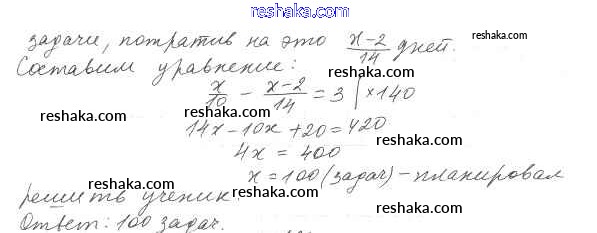 reshaka.com
задачи, потратив на это (x-2)/14 дней.
reshaka.com
Составим уравнение:
reshaka.com
x/10 - (x-2)/14 = 3 | ×140
reshaka.com
reshaka.com
14x-10x+20=420
reshaka.com
4x = 400
reshaka.com
x=100 (задач) - планировал
reshaka.com
решить ученик.
reshaka.com
Ответ: 100 задач.
reshaka.com